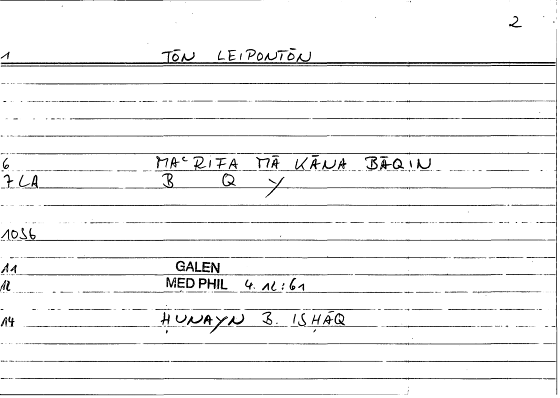 2
1 TŌN LEIPONTŌN
6 MAʿRIFA MĀ KĀNA BĀQIN
7 LA B Q Y
1056
11 GALEN
12 MED PHIL 4.12:61
14 ḤUNAYN B. ISḤĀQ